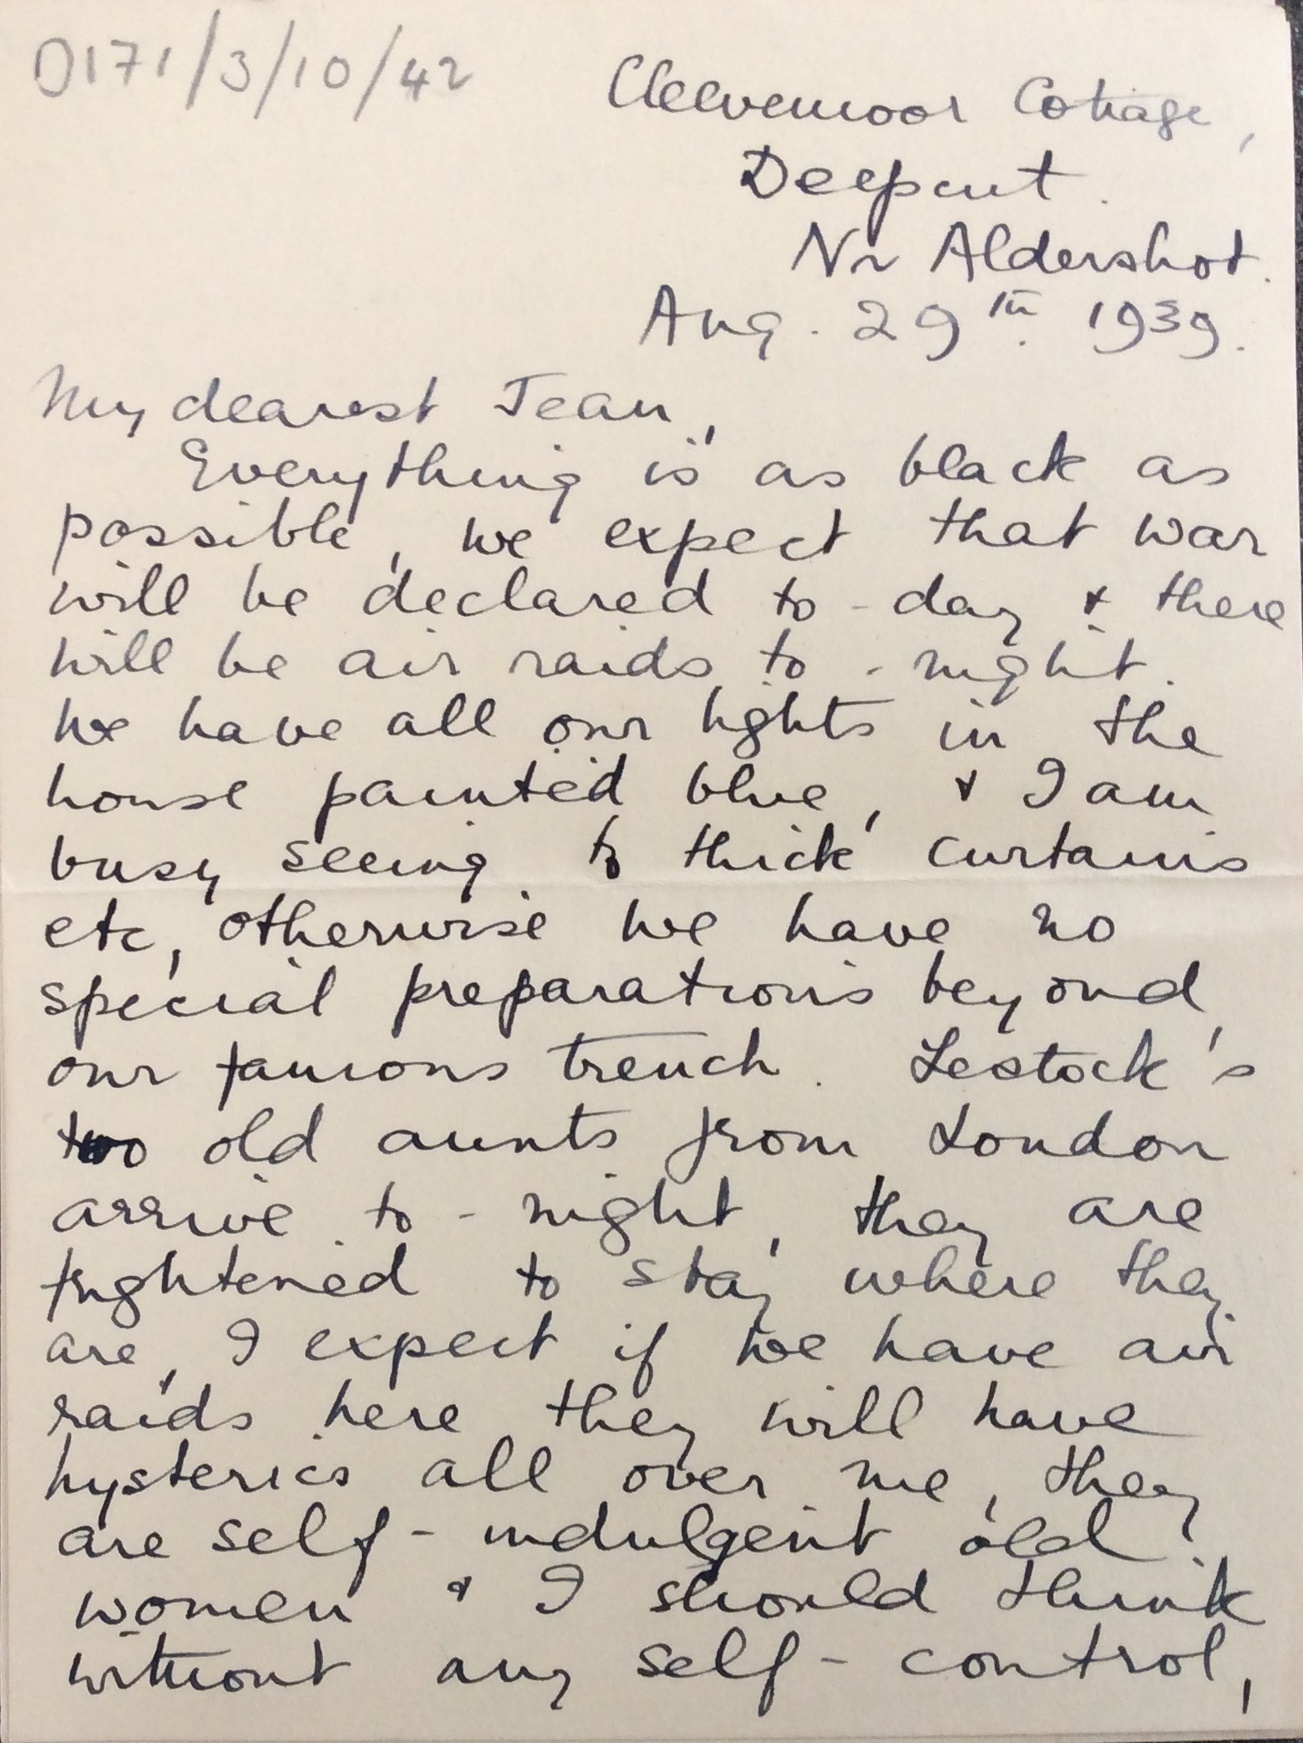 D171/3/10/42
Cleevemoor Cottage,
Deepcut.
Nr Aldershot.
Aug. 29th. 1939.
My dearest Jean,
Everything is as black as
possible, we expect that war
will be declared to-day & there
will be air raids to-night.
We have all our lights in the
house painted blue, & I am
busy seeing to thick curtains
etc, otherwise we have no
special preparations beyond
our famous trench. Lestock's
two old aunts from London
arrive to-night, they are
frightened to stay where they
are, I expect if we have air
raids here they will have
hysterics all over me, they
are self-indulgent old
women & I should think
without any self-control,